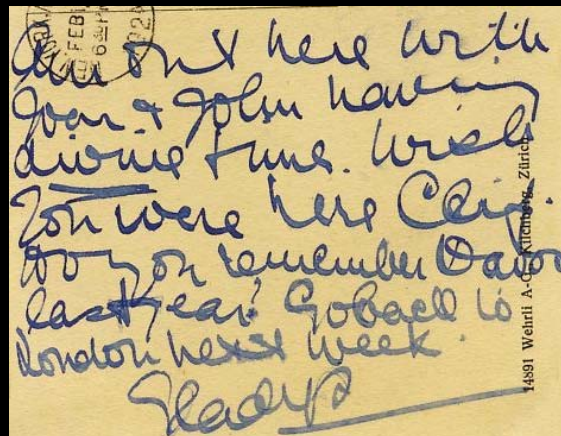 FEB
Am out here with
Joan & John having
divine time. Wish
you were here
Do you remember Davos
last year? Go back to
London next week.
Gladys
14891 Wehrli A-G., Kilchberg, Zürich